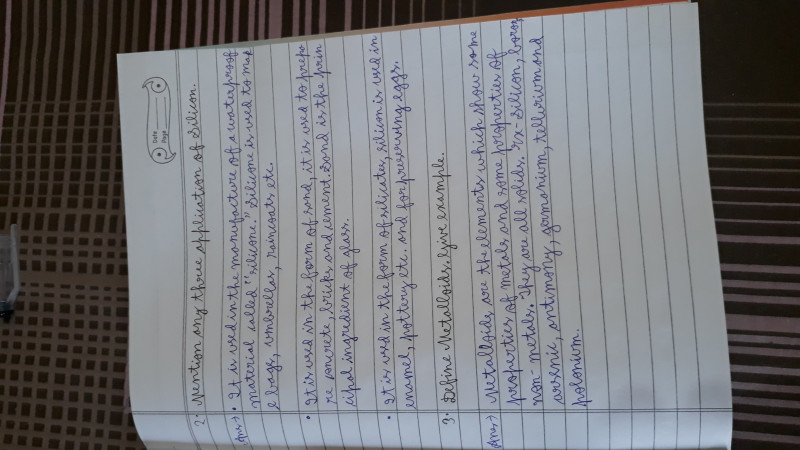 Date
Page
2. Mention any three application of Silicon.
Ans→ • It is used in the manufacture of a waterproof
material called "silicone." Silicone is used to mak
e bags, umbrellas, raincoats etc.
• It is used in the form of sand, it is used to prepa
re concrete, bricks and cement. Sand is the prin
cipal ingredient of glass.
• It is used in the form of silicates, silicon is used in
enamel, pottery etc. and for preserving eggs.
3. Define Metalloids. Give example.
Ans→ Metalloids are the elements which show some
properties of metals and some properties of
non-metals. They are all solids. Ex- Silicon, boron
arsenic, antimony, germanium, tellurium and
polonium.